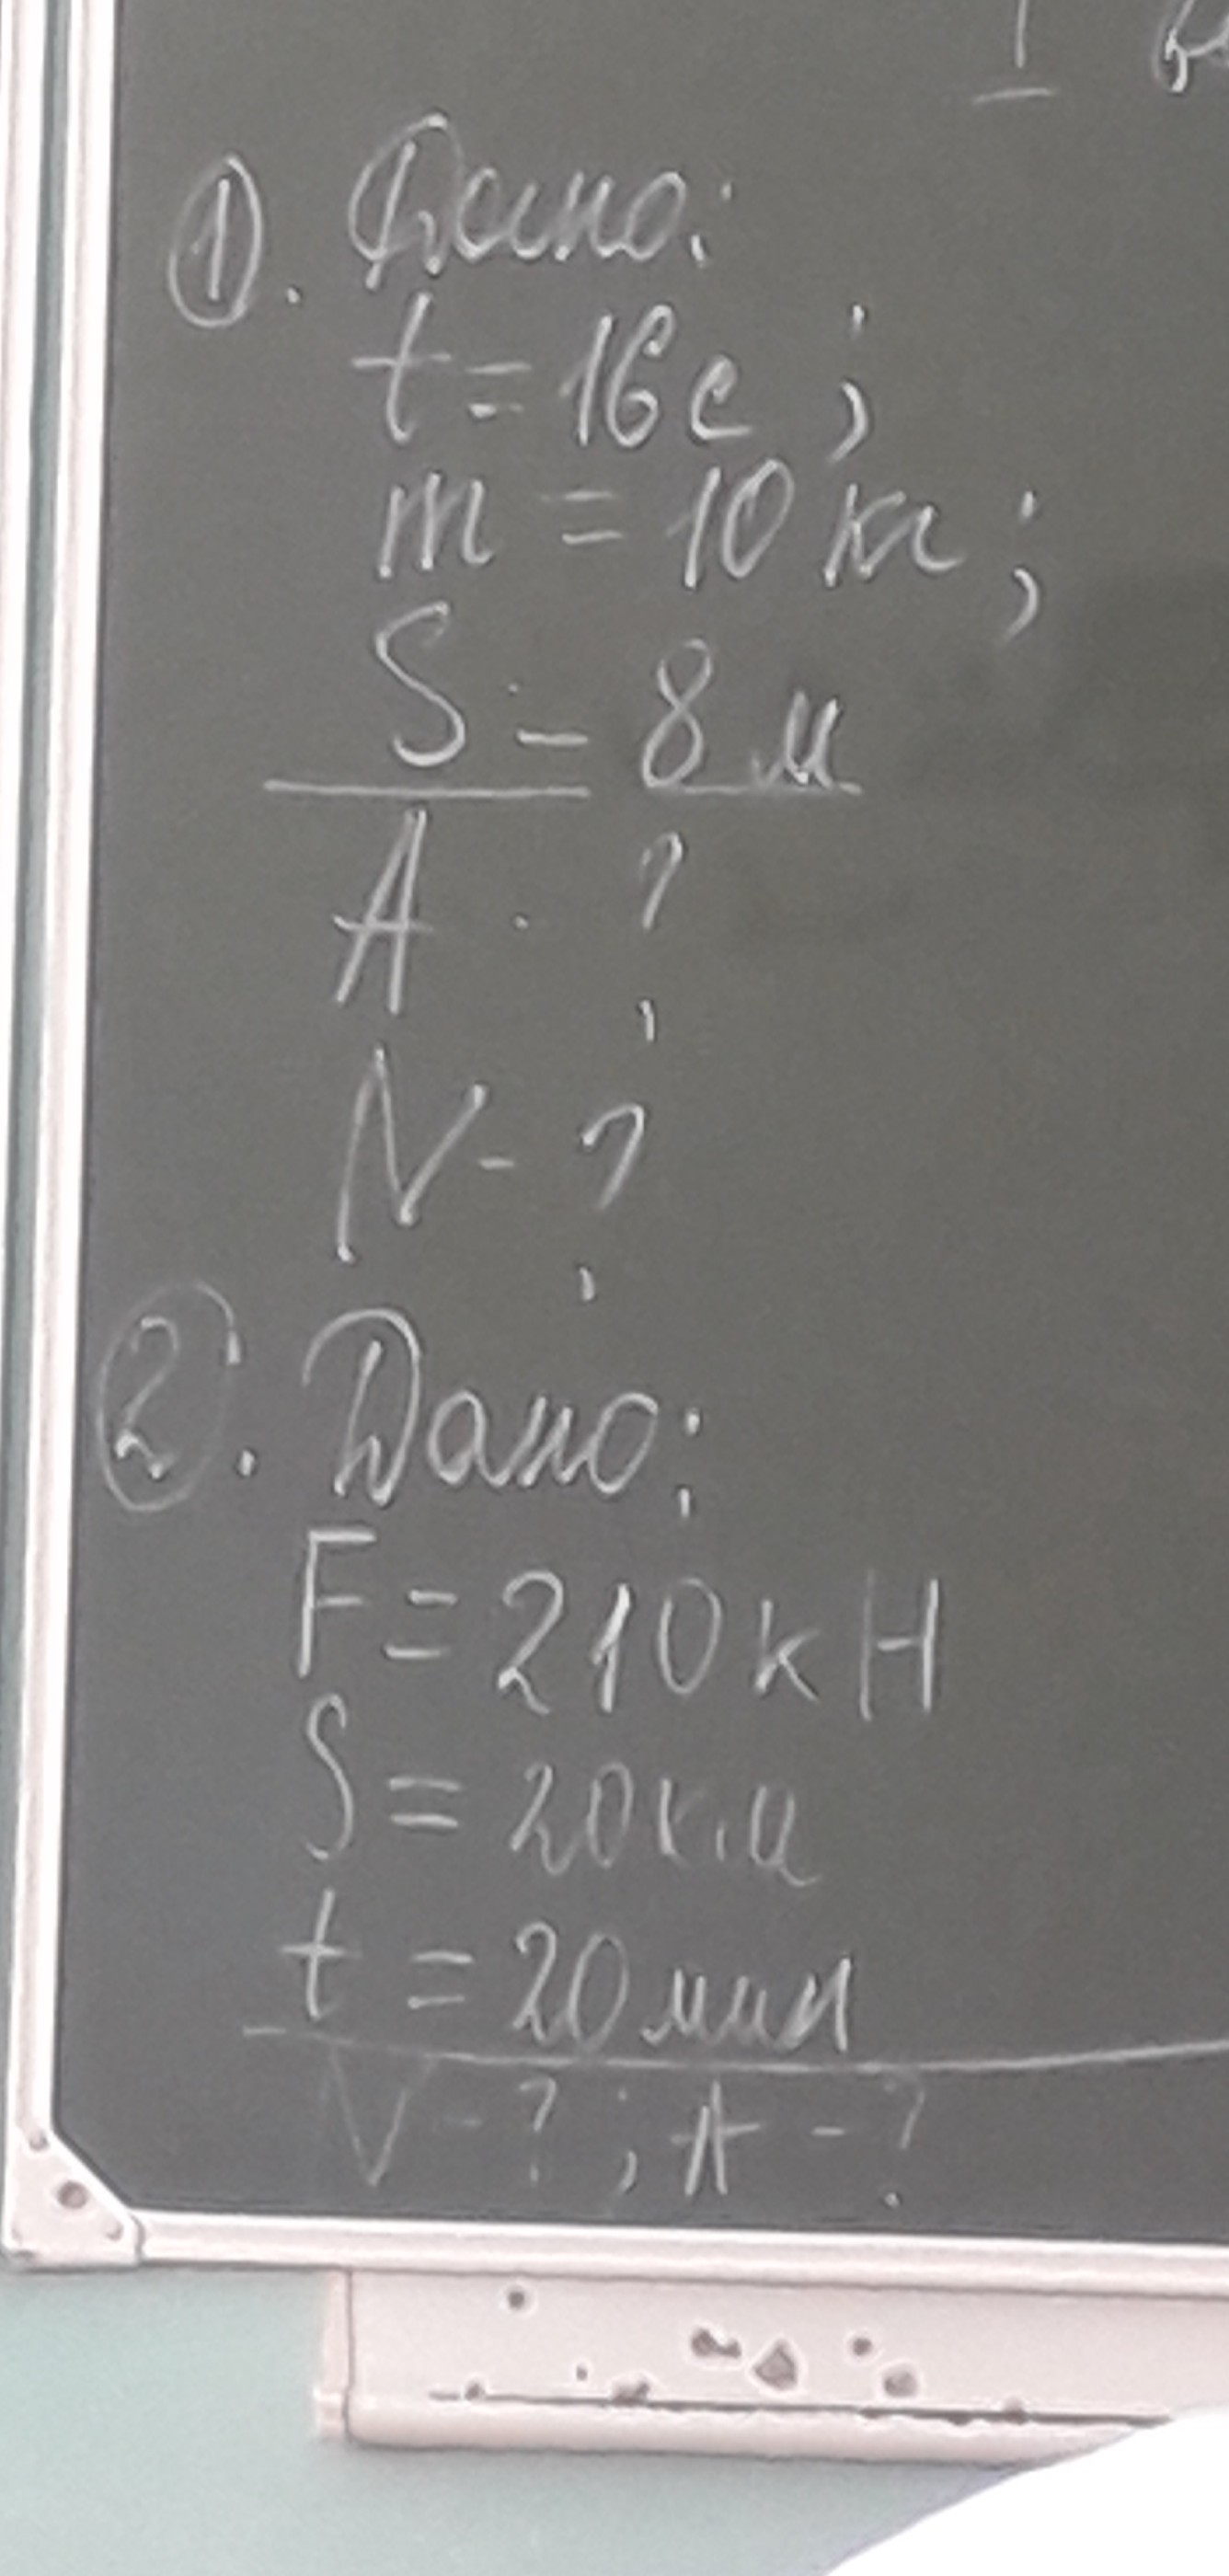 I
①. Дано:
t = 16 с ;
m = 10 кг ;
S = 8 м
A - ?
N - ?
②. Дано:
F = 210 кН
S = 20 км
t = 20 мин
N - ? ; A - ?